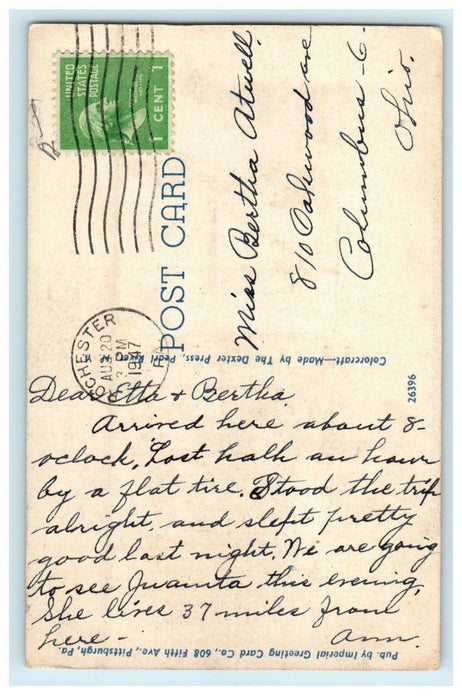 UNITED
STATES
POSTAGE
1 CENT 1
POST CARD
ROCHESTER
AUG 20
3 PM
1947
PA
Miss Bertha Atwell
810 Oakwood ave
Columbus - 6 -
Ohio.
Colorcraft—Made by The Dexter Press, Pearl River, N. Y.
26396
Dear Etta + Bertha
Arrived here about 8-
oclock, Lost halh an hour
by a flat tire. Stood the trip
alright, and slept pretty
good last night. We are going
to see Juanita this evening,
She lives 37 miles from
here - Ann.
Pub. by Imperial Greeting Card Co., 608 Fifth Ave., Pittsburgh, Pa.